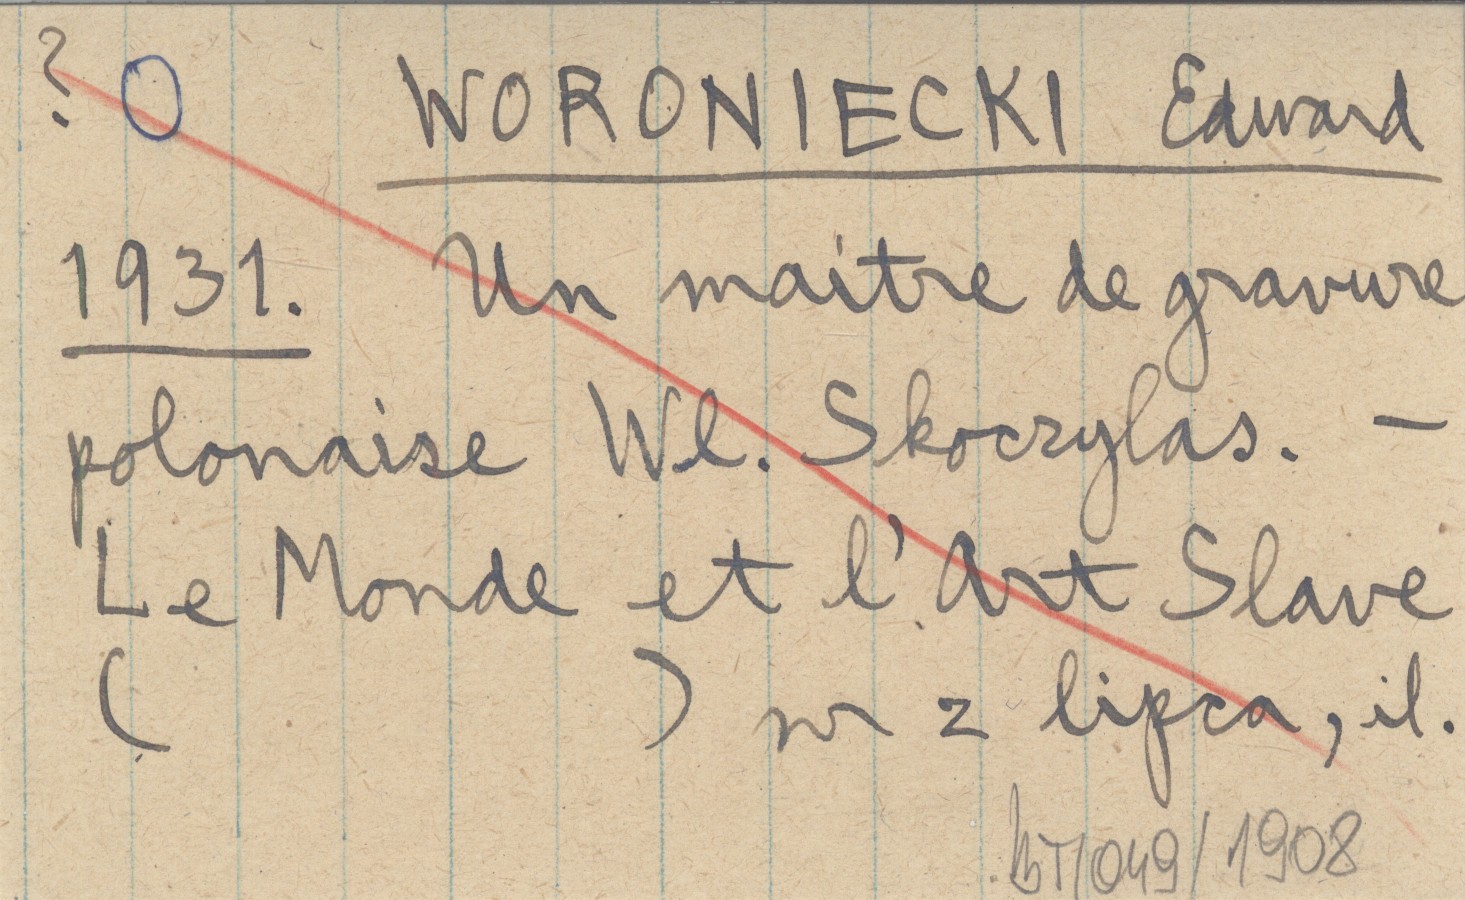 ? O WORONIECKI Edward
1931. Un maitre de gravure
polonaise Wl. Skoczylas. –
Le Monde et l'Art Slave
( ) nr z lipca, il.
BT/049/1908